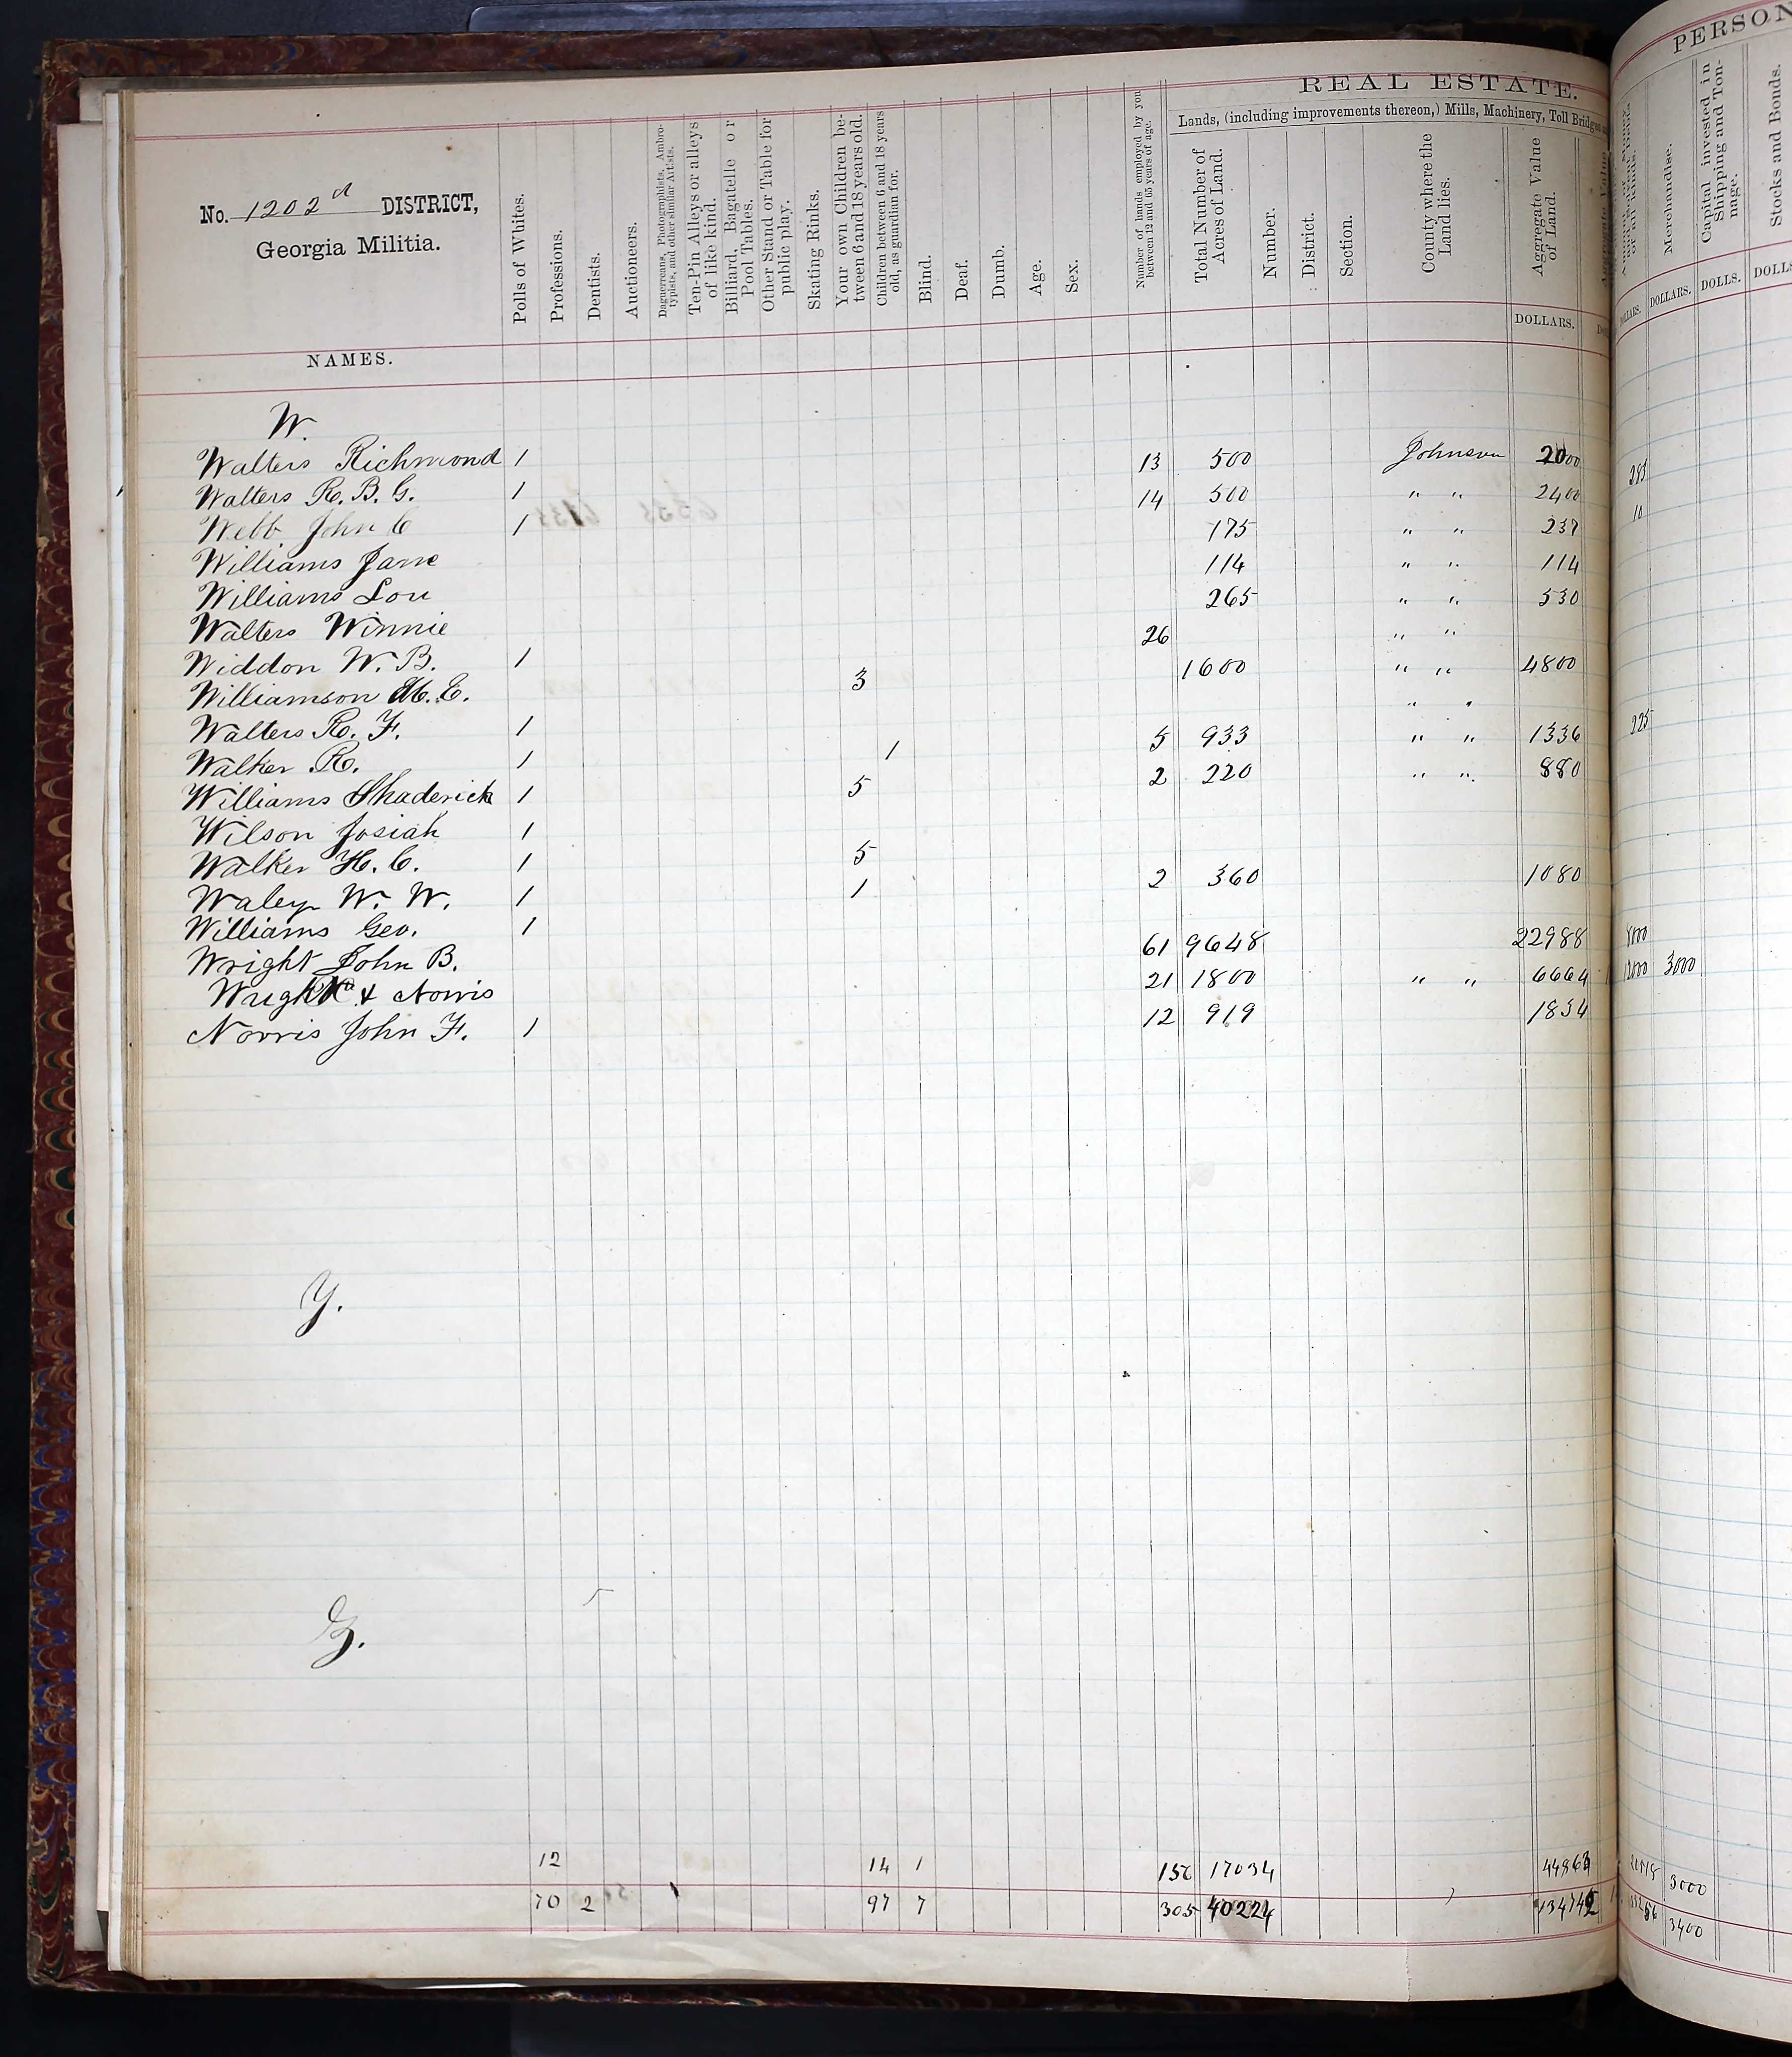 REAL ESTATE.
Lands, (including improvements thereon,) Mills, Machinery, Toll Bridges
No. 1202 d DISTRICT,
Georgia Militia.
NAMES.
Polls of Whites.
Professions.
Dentists.
Auctioneers.
Daguerreans, Photographists, Ambrotypists, and other similar Artists.
Ten-Pin Alleys or alleys of like kind.
Billiard, Bagatelle or Pool Tables.
Other Stand or Table for public play.
Skating Rinks.
Your own Children between 6 and 18 years old.
Children between 6 and 18 years old, as guardian for.
Blind.
Deaf.
Dumb.
Age.
Sex.
Number of hands employed by you between 12 and 65 years of age.
Total Number of Acres of Land.
Number.
District.
Section.
County where the Land lies.
Aggregate Value of Land.
DOLLARS.
W.
Walters Richmond 1 13 500 Johnson 2000
Walters R. B. G. 1 14 500 " " 2400
Webb John C 1 175 " " 237
Williams Jane 114 " " 114
Williams Lou 265 " " 530
Walters Winnie 26 " "
Widdon W. B. 1 1600 " " 4800
Williamson M. E. 3 " "
Walters R. F. 1 5 933 " " 1336
Walker R. 1 1 2 220 " " 880
Williams Shaderick 1 5
Wilson Josiah 1
Walker H. C. 1 5 2 360 1080
Waley W. W. 1 1
Williams Geo. 1 61 9648 22988
Wright John B. 21 1800 " " 6664
Wright & Norris 12 919 1834
Norris John F. 1
Y.
Z.
12 14 1 156 17034 44863
70 2 97 7 305 40224 134742
PERSON
Merchandise.
Capital Invested in Shipping and Tonnage.
Stocks and Bonds.
DOLLARS. DOLLARS. DOLLS. DOLLS
10
225
3000
3000
3400